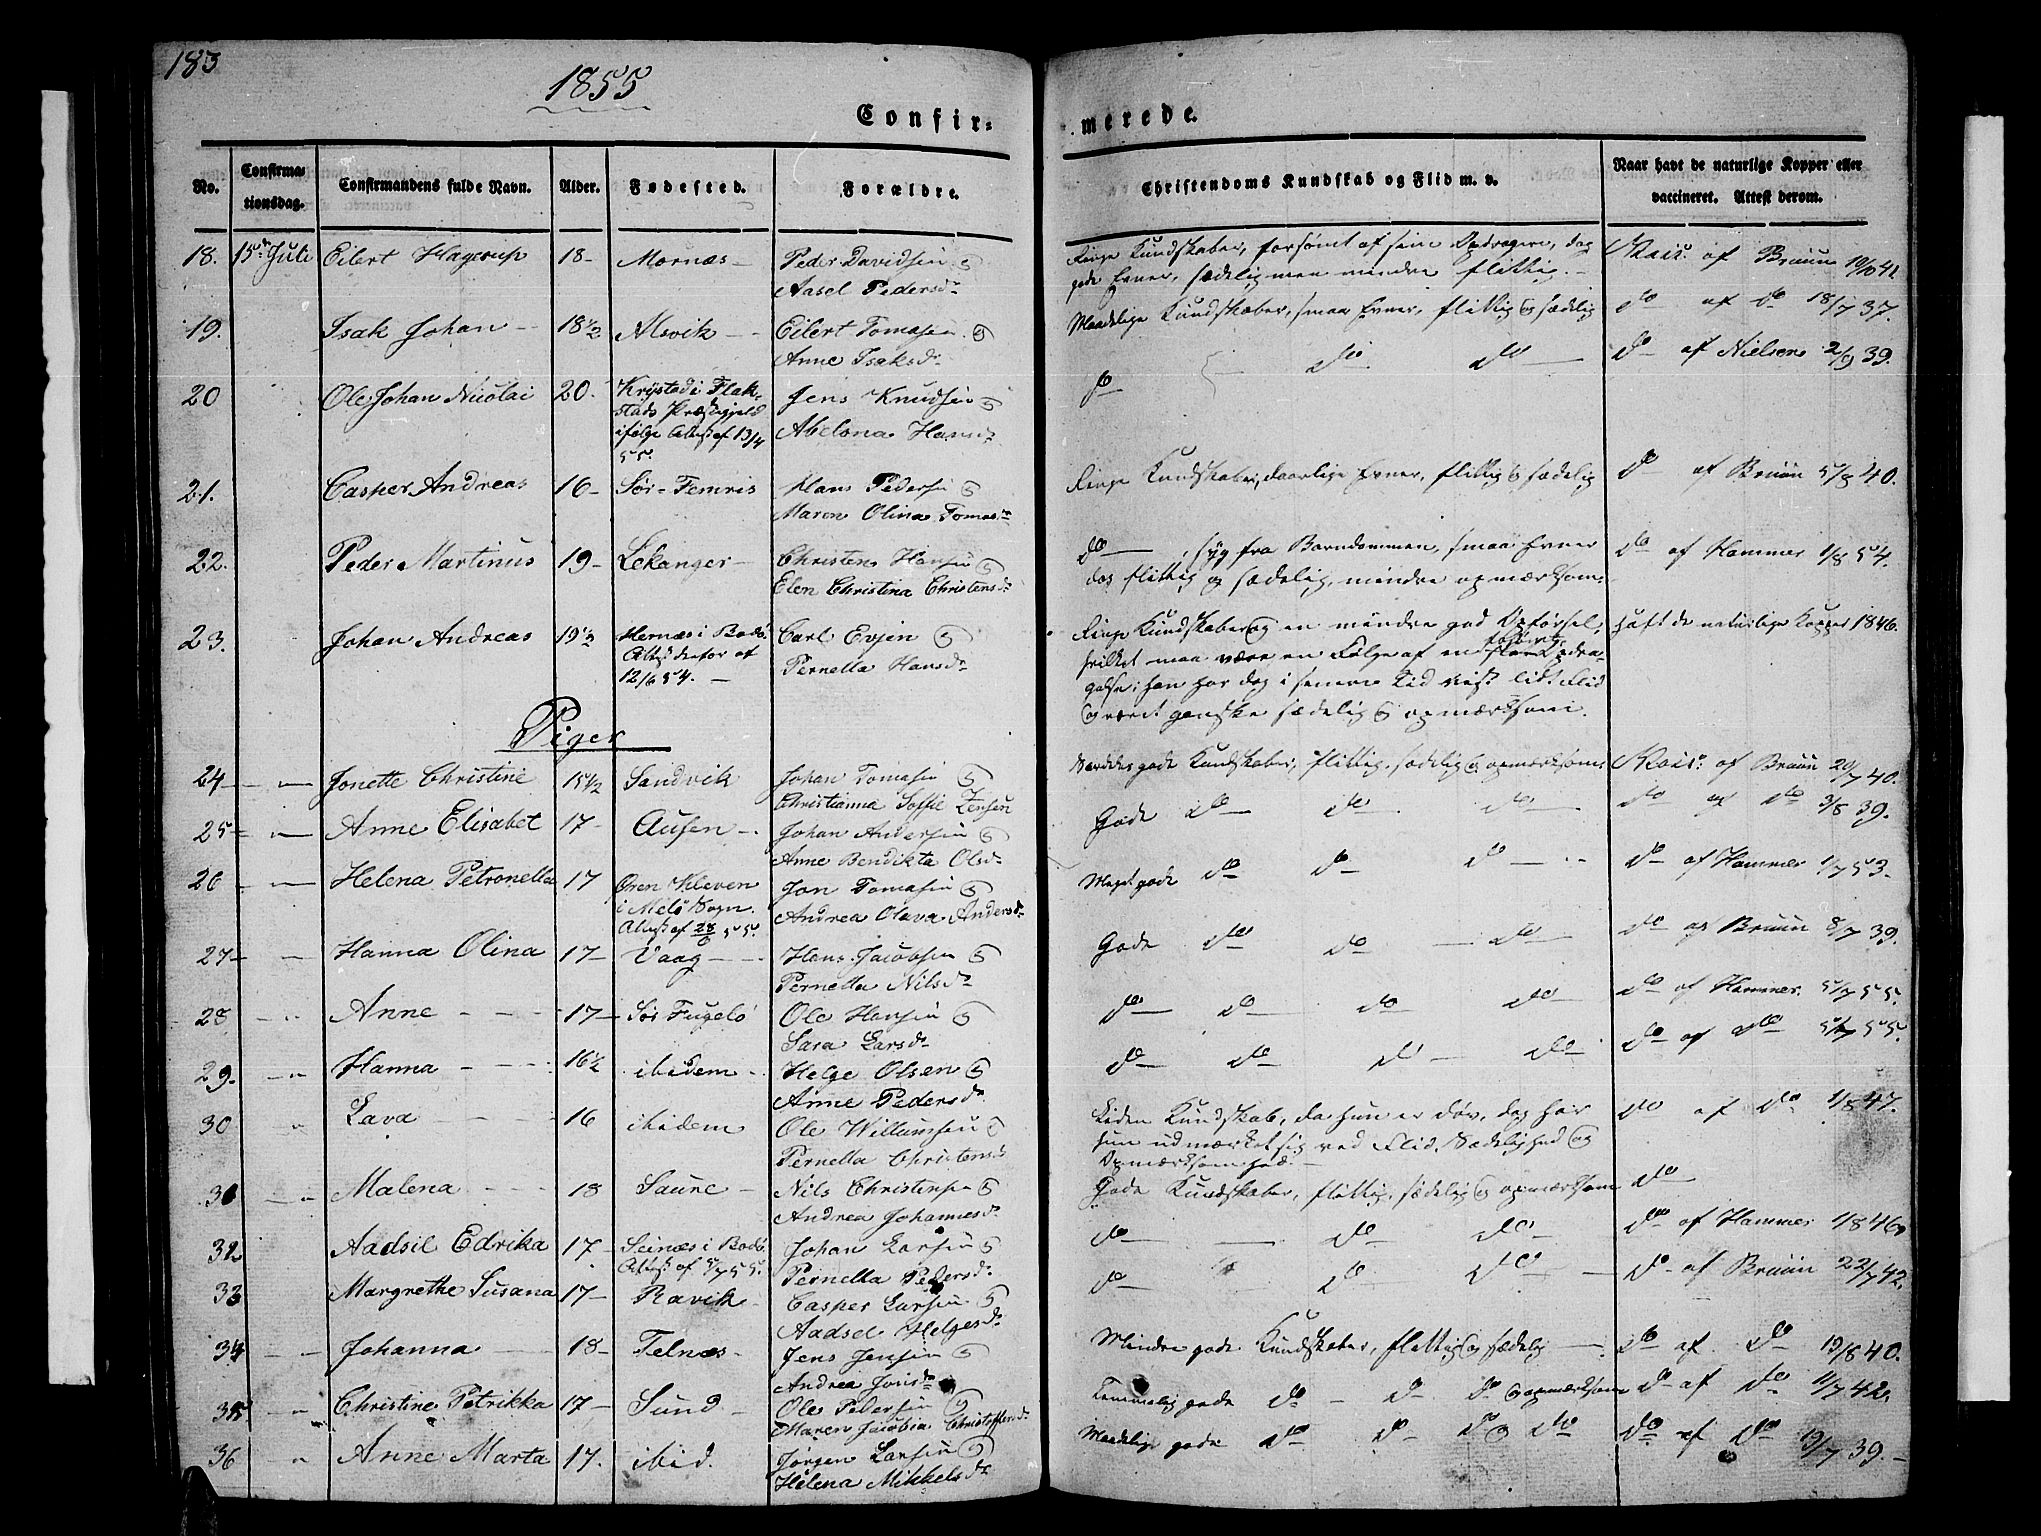 183
1855
Confir=
merede.
No.
Confirma
tionsdag.
Confirmandens fulde Navn.
Alder.
Fødested.
Forældre.
Christendoms Kundskab og Flid m. v.
Naar havt de naturlige Kopper eller
vaccineret. Attest derom.
18. 15de Juli Eilert Hagerup 18 - Mornæs - Peder Davidsen og
Aasel Pedersdr
Ringe Kundskaber, forsømt af sine Opdragere, dog
gode Evner, sædelig men mindre flittig. -
Vacc: af Bruun 10/10 41.
19. Isak Johan - - 18 1/2 Alsvik - - Eilert Tomasen og
Anne Isaksdr
Maadelige Kundskaber, smaa Evner, flittig og sædelig
do af do 18/7 37.
20 Ole Johan Nicolai 20. Krÿstad i Flak-
stads Præstegjeld
ifølge Attest af 13/4
55.
Jens Knudsen og
Abelona Hansdr
do do do
do af Nielsen 2/9 39.
21. Casper Andreas 16 - Sør-Femris Hans Pedersen og
Maren Olina Tomasdr
Ringe Kundskaber, daarlige Evner, flittig og sædelig
do af Bruun 5/8 40.
22. Peder Martinus 19 - Lekanger - Christen Hansen og
Elen Christina Christensdr
do , syg fra Barndommen, smaa Evner
dog flittig og sædelig, mindre opmærksom.
do af Hammer 1/8 54.
23. Johan Andreas 19 1/2 Hernæs i Bodø.
Attest derfor af
12/6 54. -
Carl Evjen og
Pernella Hansdr
Ringe Kundskaber og en mindre god Opførsel,
hvilket maa være en Følge af en Opdra-
gelse; han har dog i senere Tid vist lidt Flid
og været ganske sædelig og opmærksom.
haft de naturlige Kopper 1846.
Piger
24 - - Jonette Christine 15 1/2 Sandvik Johan Tomasen og
Christianna Soffie Zensen
Særdeles gode Kundskaber, flittig, sædelig og opmærksom
Vacc: af Bruun 20/7 40.
25 - - Anne Elisabet 17 - Ausen - Johan Andersen og
Anne Bendikta Olsdr
Gode do do do
do af do 3/8 39.
26 - - Helena Petronella 17 Øren Kleven
i Melø Sogn.
Attest af 28/6 55.
Jon Tomasen og
Andrea Olava Andersdr
Meget gode do do do
do af Hammer 1/7 53.
27 - - Hanna Olina 17 - Vaag - - Hans Jacobsen og
Pernella Nilsdr
Gode do do do
do af Bruun 8/7 39.
28 - - Anne - - - 17 - Sør Fugelø Ole Hansen og
Sara Larsdr
do do do do
do af Hammer. 5/7 55.
29. - - Hanna - - - 16 1/2 ibidem - Helge Olsen og
Anne Pedersdr
do do do do
do af do 5/7 55.
30 - Lava - - - 16 ibidem Ole Willumsen og
Pernella Christensdr
Liden Kundskab, da hun er døv, dog har
hun udmærket sig ved Flid, Sædelighed og
Opmærksomhed. -
do af do 1/8 47.
31 - - Malena - - - 18 Saure - Nils Christensen og
Andrea Johannesdr
Gode Kundskaber, flittig, sædelig og opmærksom
do
32 Aadsil Edrika 17 - Seinæs i Bodø.
Attest af 5/7 55.
Johan Larsen og
Pernella Pedersdr
do do do
do af Hammer 1/8 46.
33 Margrethe Susana 17 - Ravik - Casper Larsen og
Aadsel Helgesdr
do do do
do af Bruun 22/7 42.
34 - - Johanna - 18 - Telnæs - Jens Jensen og
Andrea Jonsdr
Mindre gode Kundskaber, flittig og sædelig -
do af do 19/8 40.
35 - Christine Petrikka 17 - Sund - Ole Pedersen og
Maren Jacobia Christoffersdr
Temmelig gode do - do do og opmærksom
do af do 11/7 42.
36 - Anne Marta 17. ibid. Jørgen Larsen og
Helena Mikkelsdr
Maadelige gode do do do do
do af do 13/7 39. -